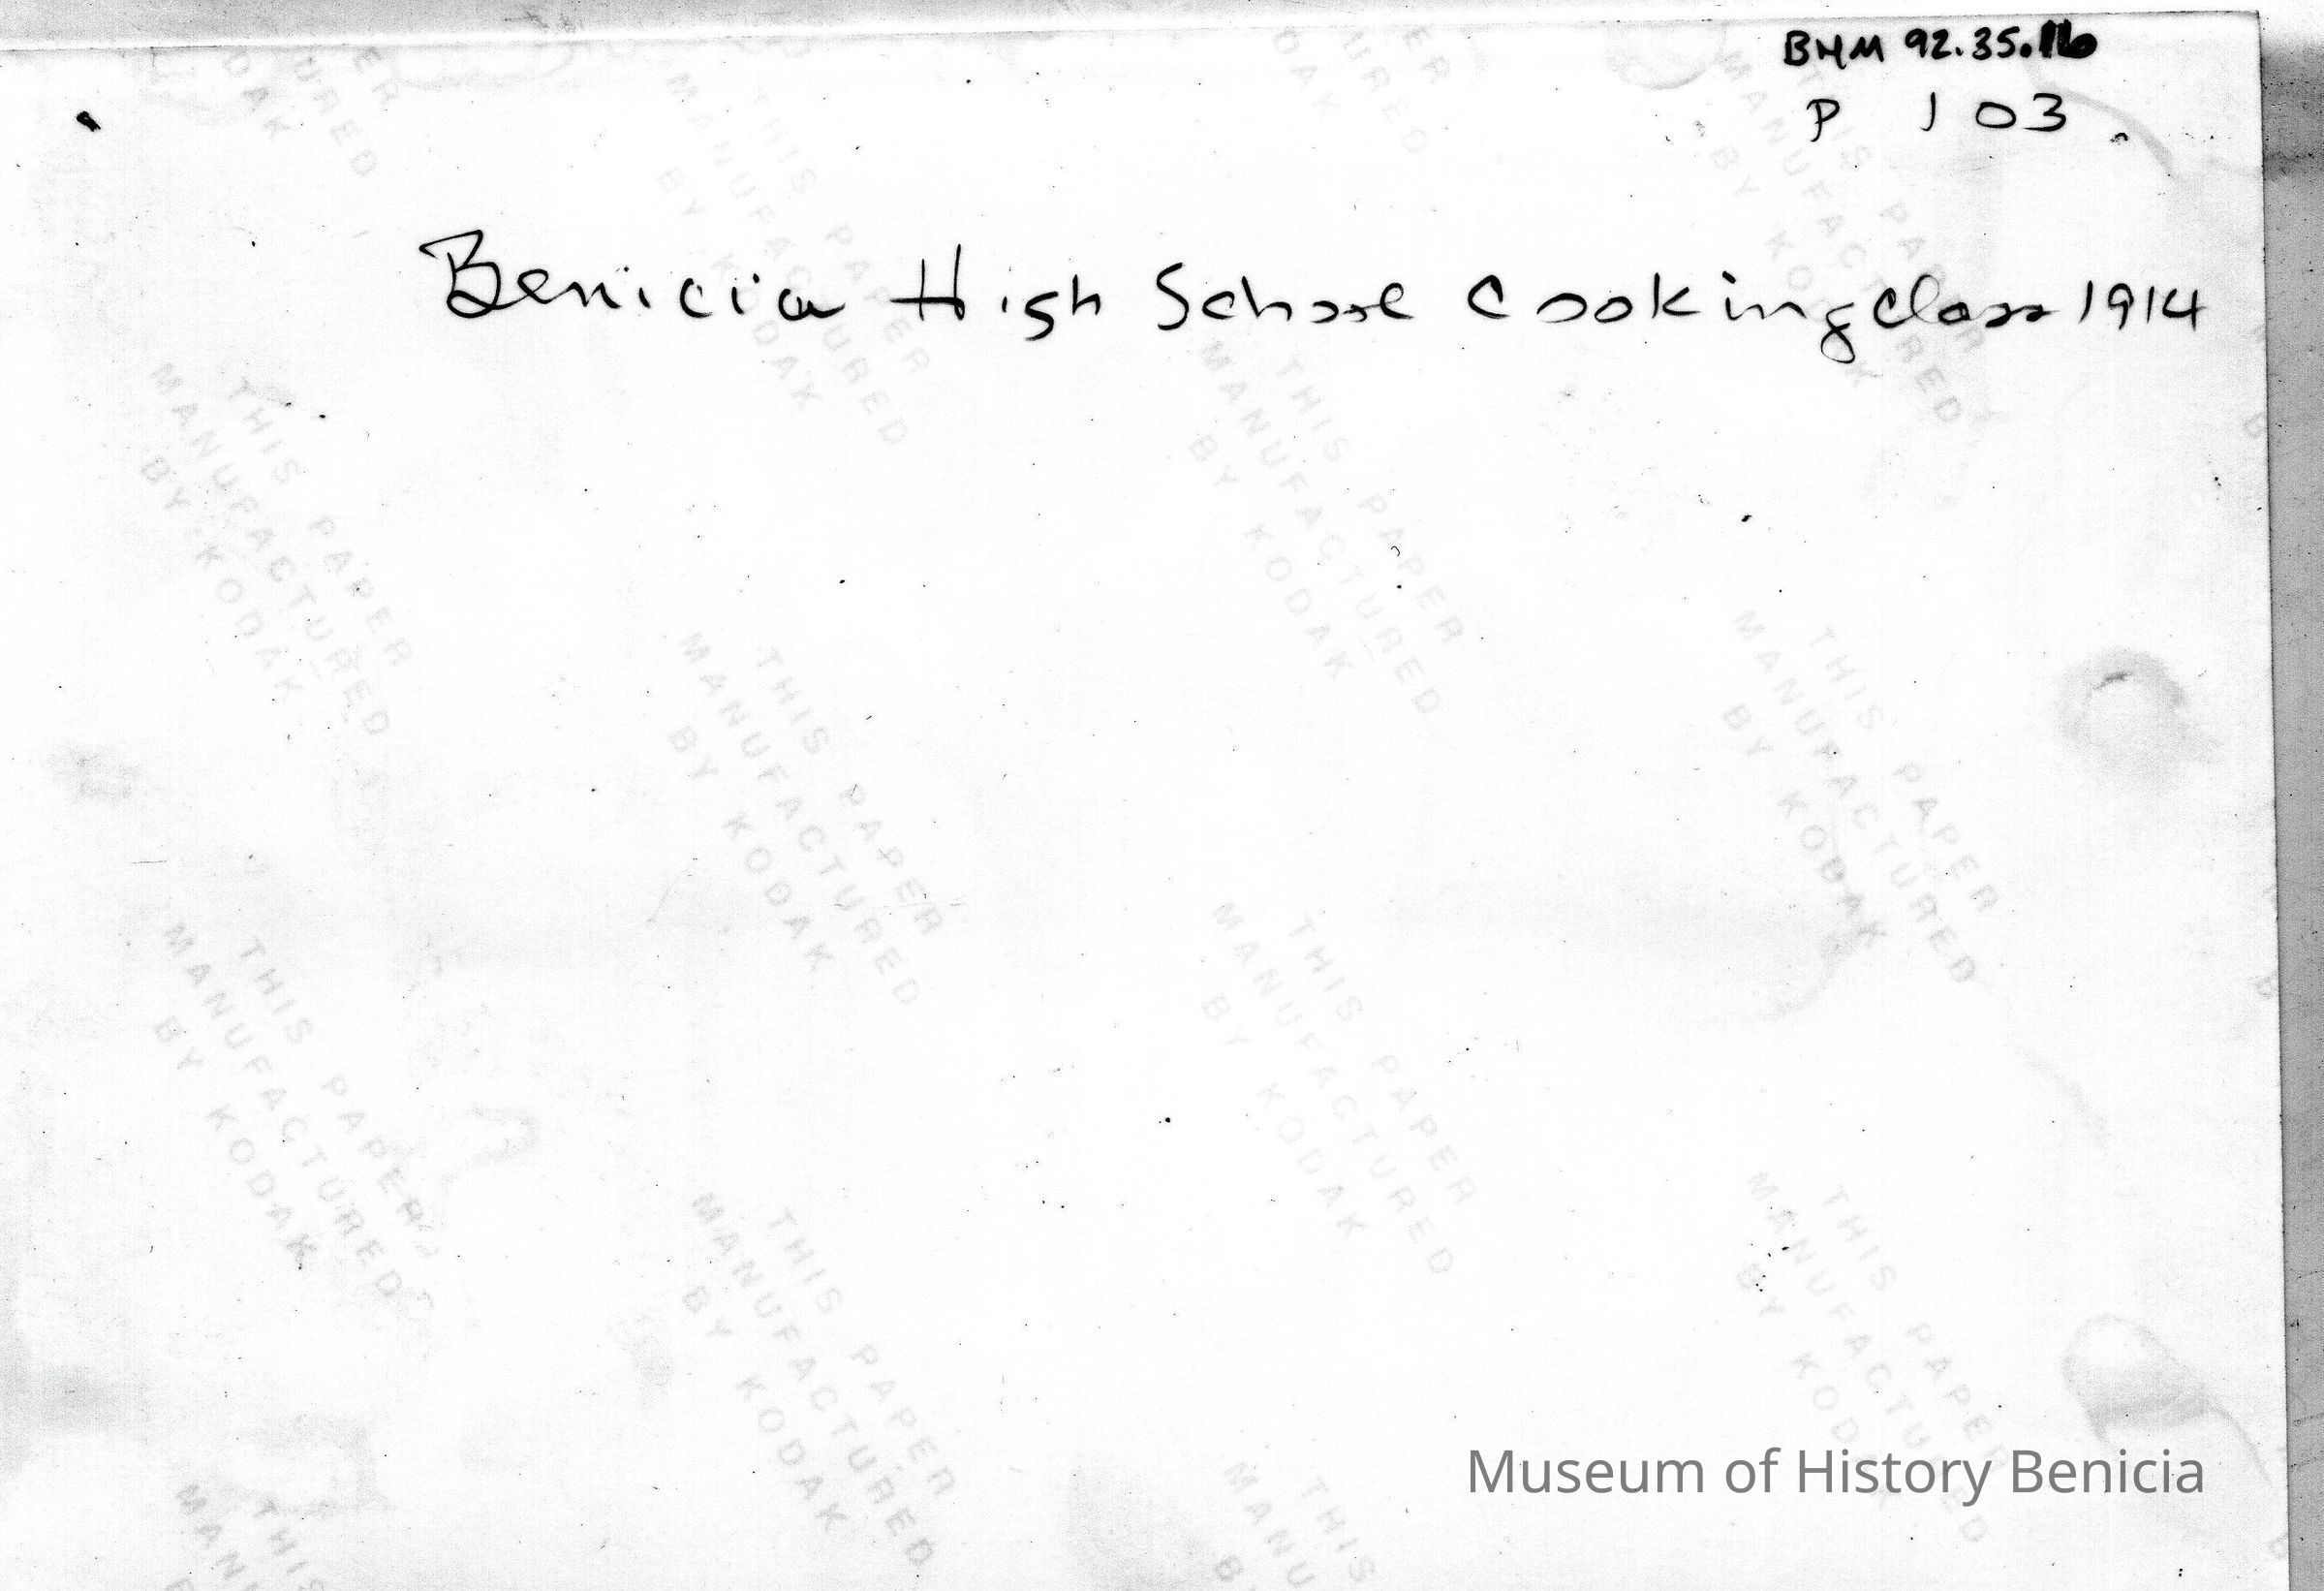 BHM 92.35.116
P 103
Benicia High School Cooking Class 1914
THIS PAPER
MANUFACTURED
BY KODAK
Museum of History Benicia